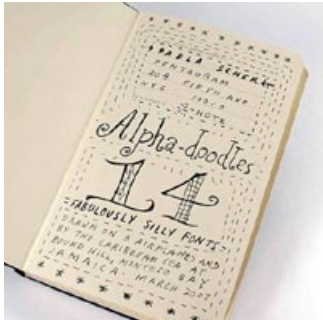 PAULA SCHER
PENTAGRAM
204 FIFTH AVE
NYC 10010
Alpha-doodles
14
FABULOUSLY SILLY FONTS
DRAWN ON AIRPLANES AND
BY THE CARIBBEAN SEA AT
ROUND HILL, MONTEGO BAY
JAMAICA. MARCH 2007